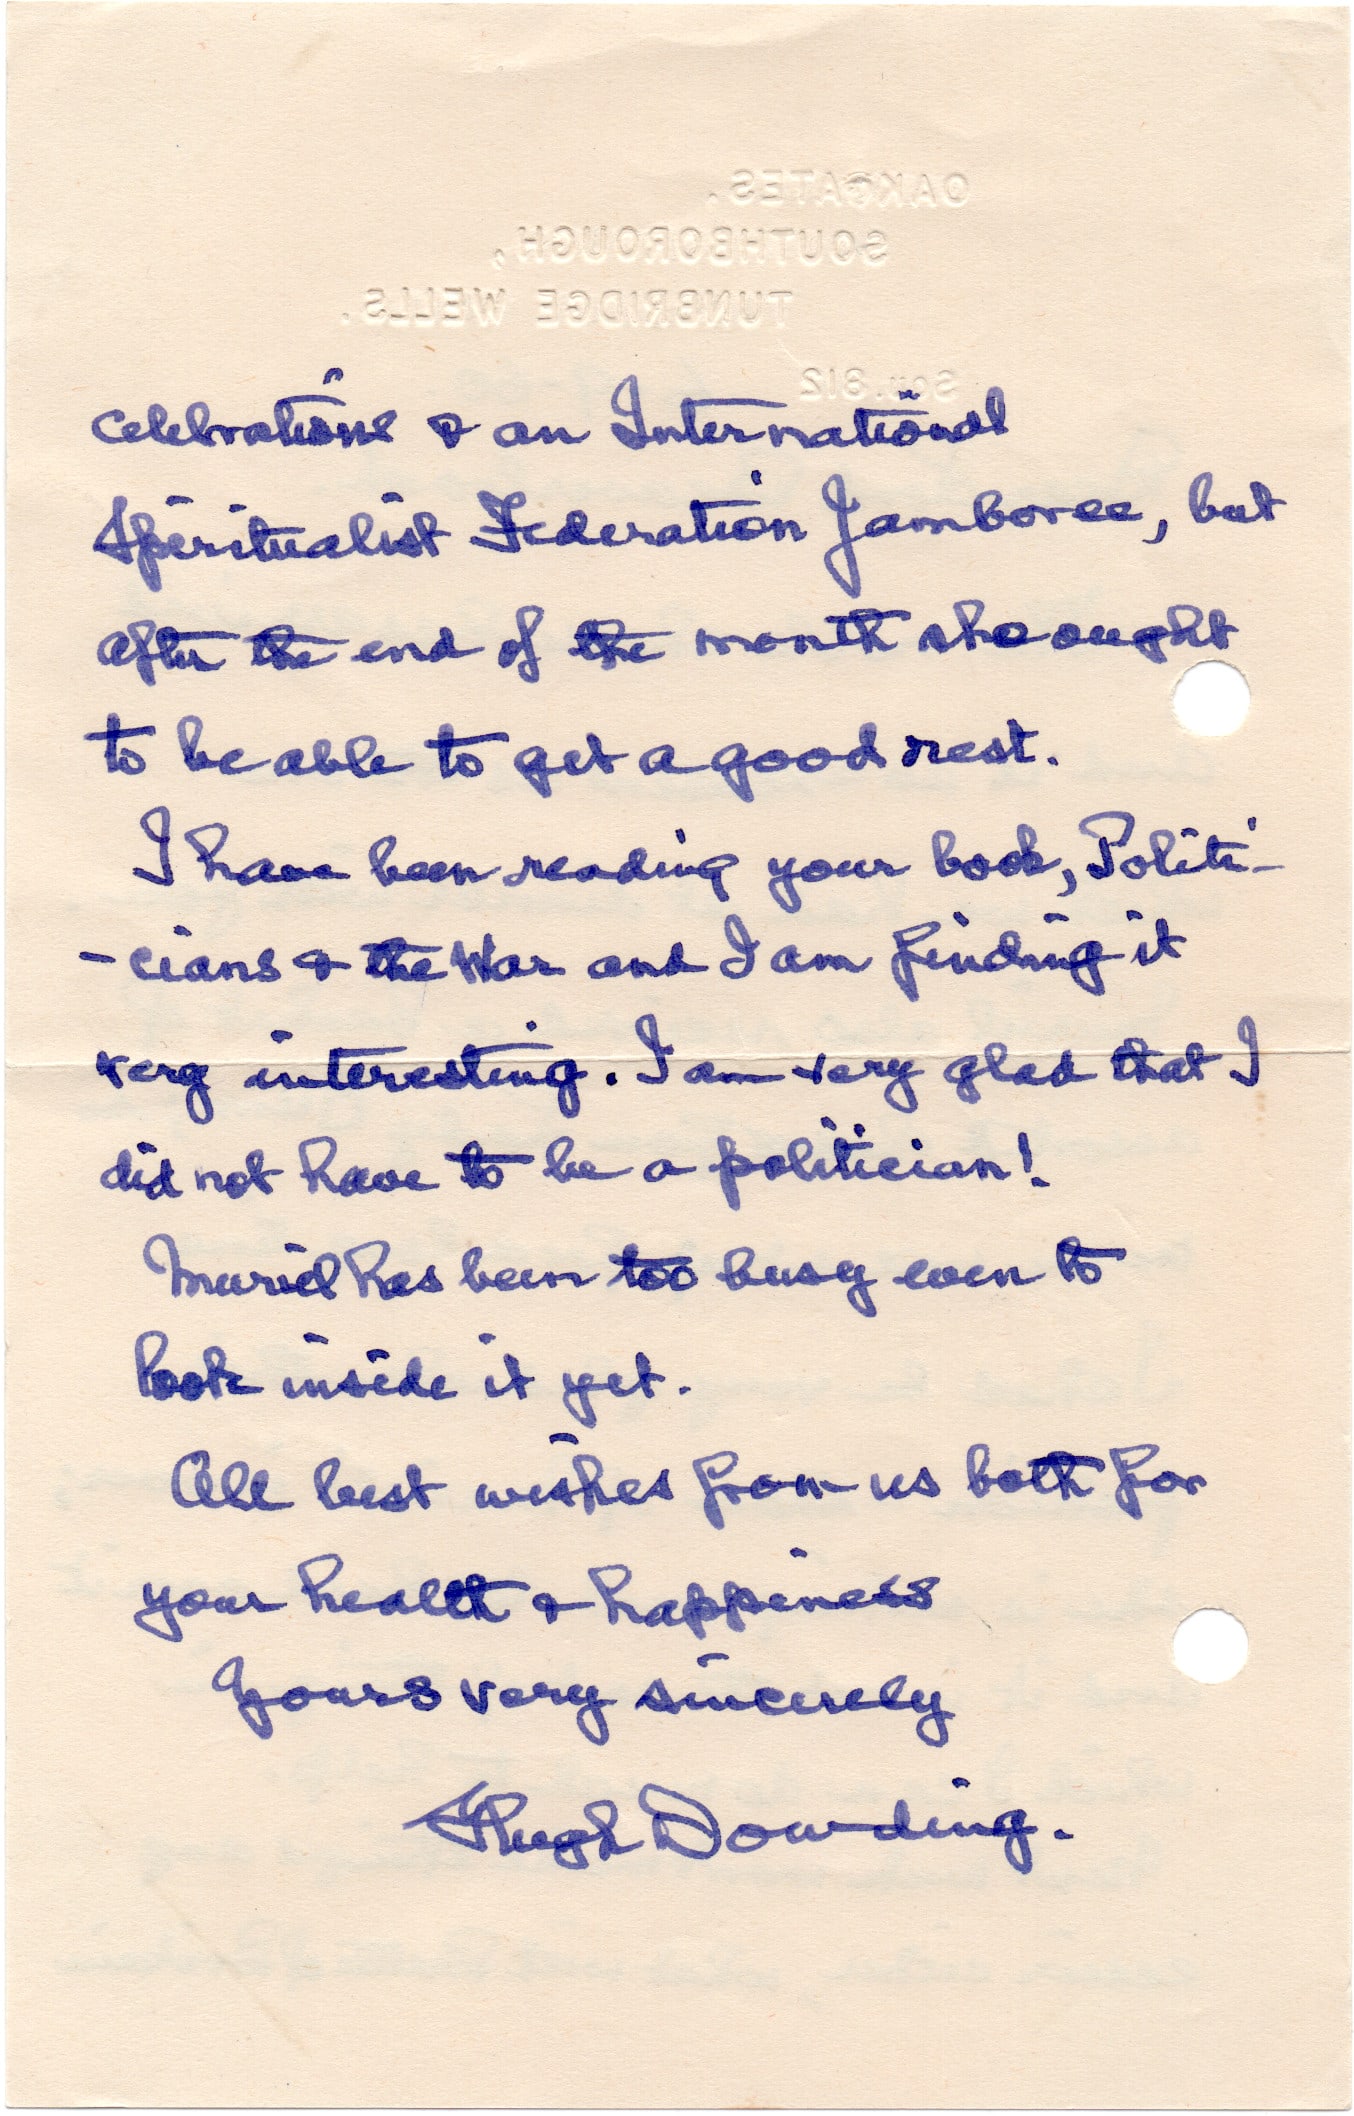 OAKGATES,
SOUTHBOROUGH,
TUNBRIDGE WELLS.
Sou. 812
celebrations & an International
Spiritualist Federation Jamboree, but
after the end of the month she ought
to be able to get a good rest.
I have been reading your book, Politi-
-cians & the War and I am finding it
very interesting. I am very glad that I
did not have to be a politician!
Muriel has been too busy even to
look inside it yet.
All best wishes from us both for
your health & happiness
Yours very sincerely
Hugh Dowding.